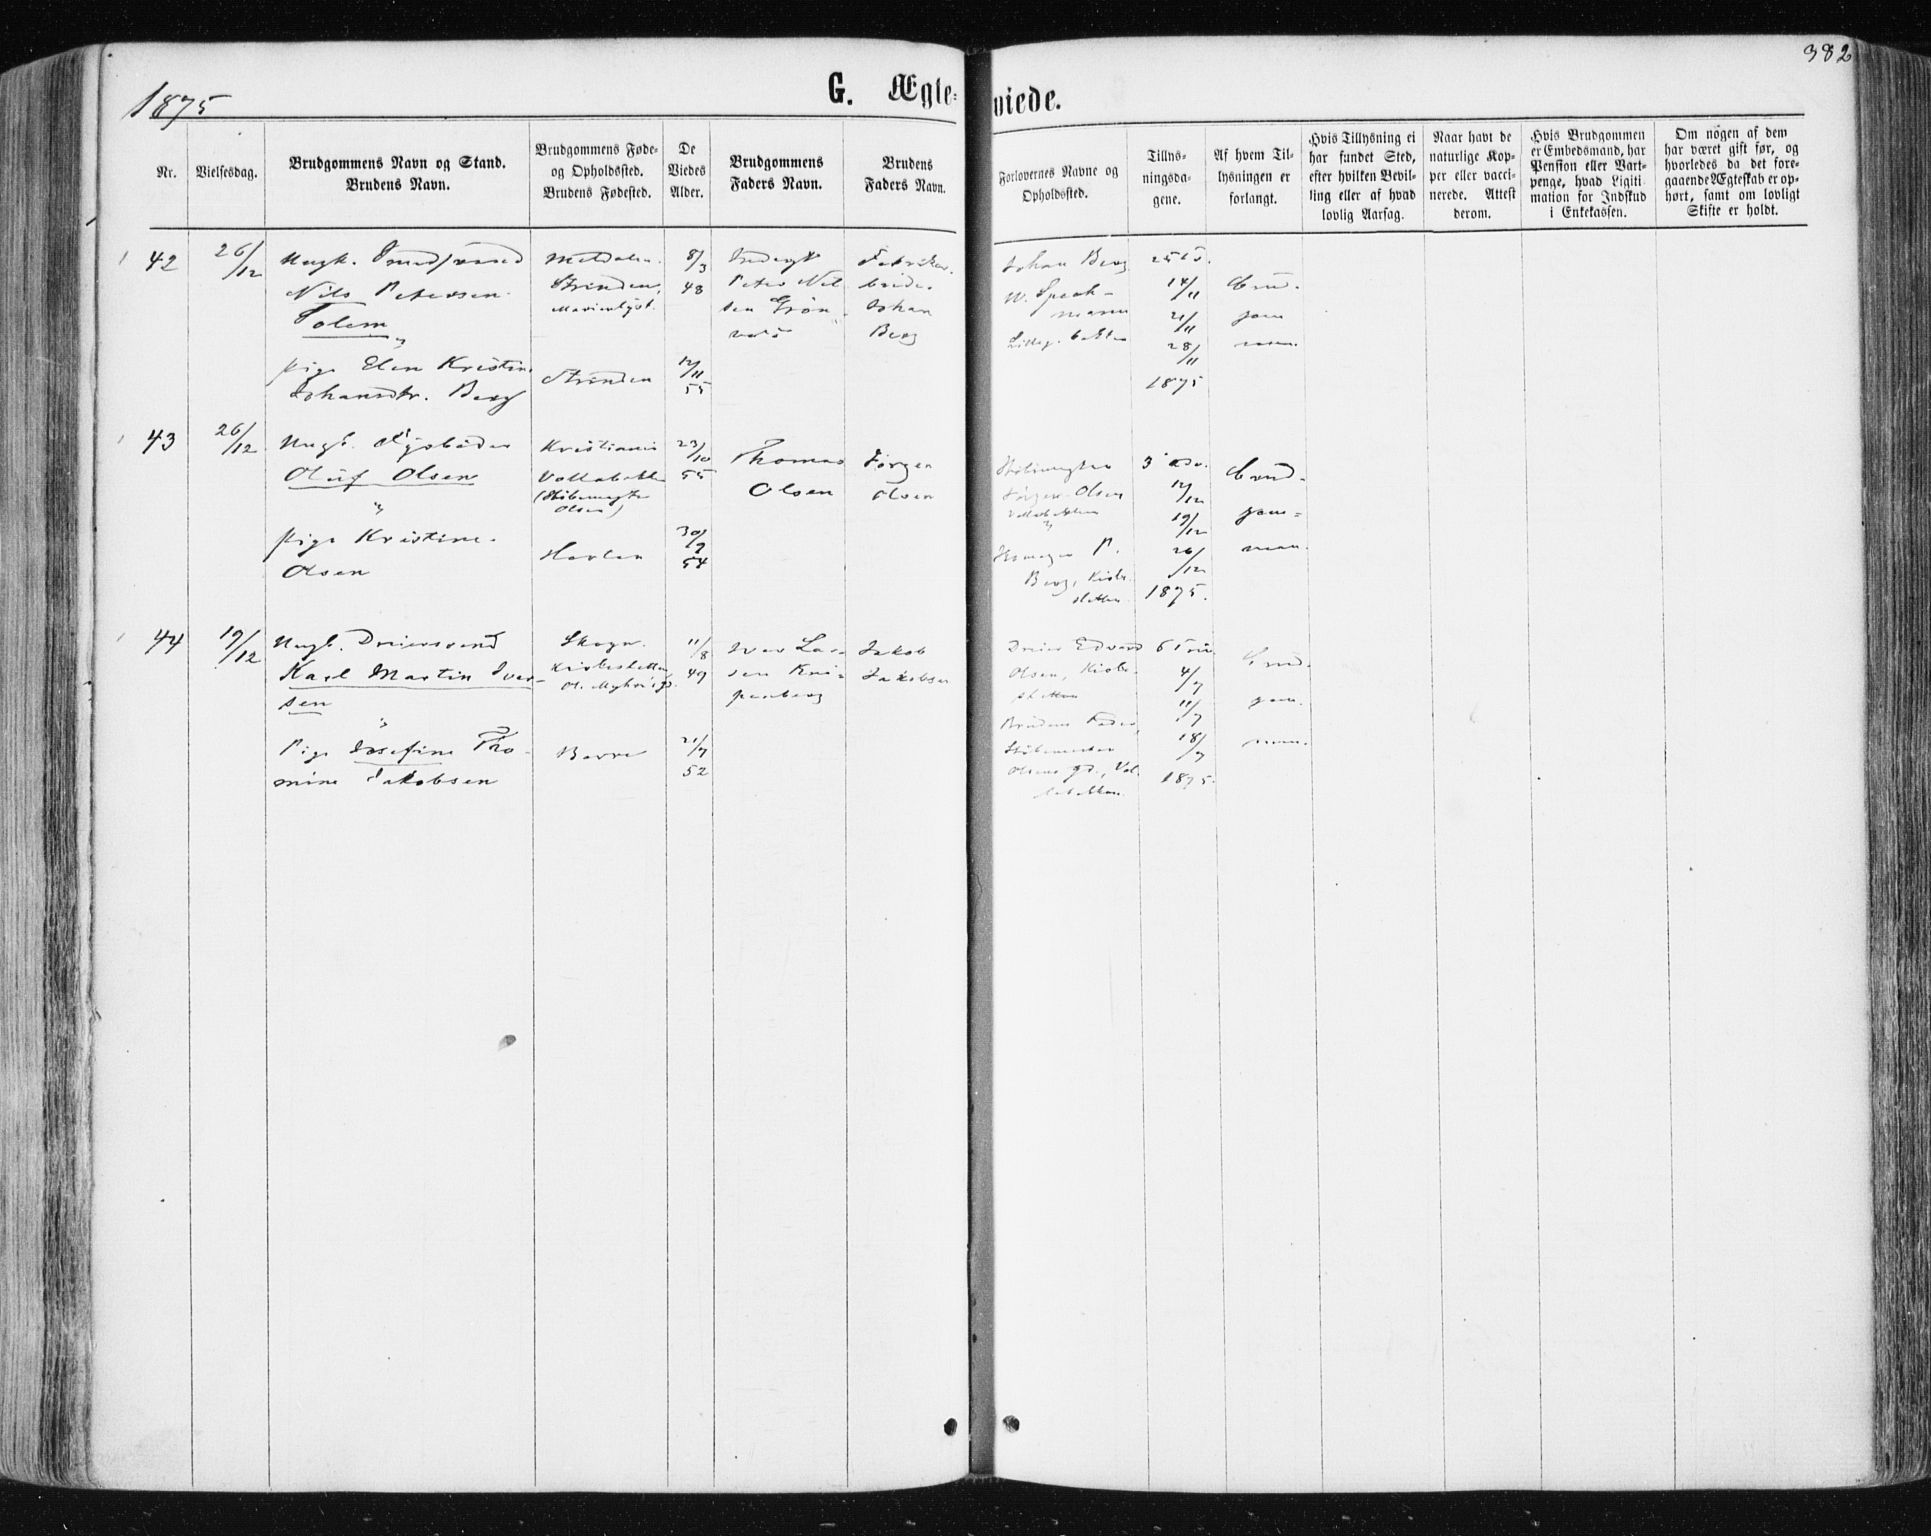 382
1875
G. Ægte-
viede.
Nr.
Vielsesdag.
Brudgommens Navn og Stand.
Brudens Navn.
Brudgommens Føde-
og Opholdssted.
Brudens Fødested.
De
Viedes
Alder.
Brudgommens
Faders Navn.
Brudens
Faders Navn.
Forlovernes Navne og
Opholdssted.
Tillys-
ningsda-
gene.
Af hvem Til-
lysningen er
forlangt.
Hvis Tillysning ei
har fundet Sted,
efter hvilken Bevil-
ling eller af hvad
lovlig Aarsag.
Naar havt de
naturlige Kop-
per eller vacci-
nerede. Attest
derom.
Hvis Brudgommen
er Embedsmand, har
Pension eller Vart-
penge, hvad Ligiti-
mation for Indskud
i Enkekassen.
Om nogen af dem
har været gift før, og
hvorledes da det fore-
gaaende Ægteskab er op-
hørt, samt om lovligt
Skifte er holdt.
42
26/12
Ungk. Smedsvend
Nils Petersen
Solem
"
Pige Elen Kristine
Johansdtr. Berg
Meldalen
Strinden,
Marienlyst.
Strinden
8/3
48
12/11
55
Peter Nil
sen Grøn-
Johan
Berg
Johan Berg
W. Speck-
mann
14/11
21/11
28/11
1875
Brud-
gom
men.
43
26/12
Ungk.
Oluf Olsen
"
Pige Kristine
Olsen
Kristiania
Vollabakken
(Støbemester
Olsen)
Horten
23/10
55
30/9
54
Thomas
Olsen
Jørgen
Olsen
Støbemester
Jørgen Olsen
Vollabakken
"
P.
Berg, Kirke-
sletten.
3 Adv.
12/12
19/12
26/12
1875.
Brud-
gom-
men.
44
19/12
Ungk. Dreiersvend
Karl Martin Iver-
sen
"
Pige Josefine Tho-
mine Jakobsen
Skogn.
Kirkesletten
Borre
11/8
49
21/7
52
Iver La-
sen
Jakob
Jakobsen
Dreier Edvard
Olsen, Kirke-
sletten
Brudens Fader,
Støbemester
Olsens gd., Vol-
labakken.
6 Trin.
4/7
11/7
18/7
1875.
Brud-
gom-
men.